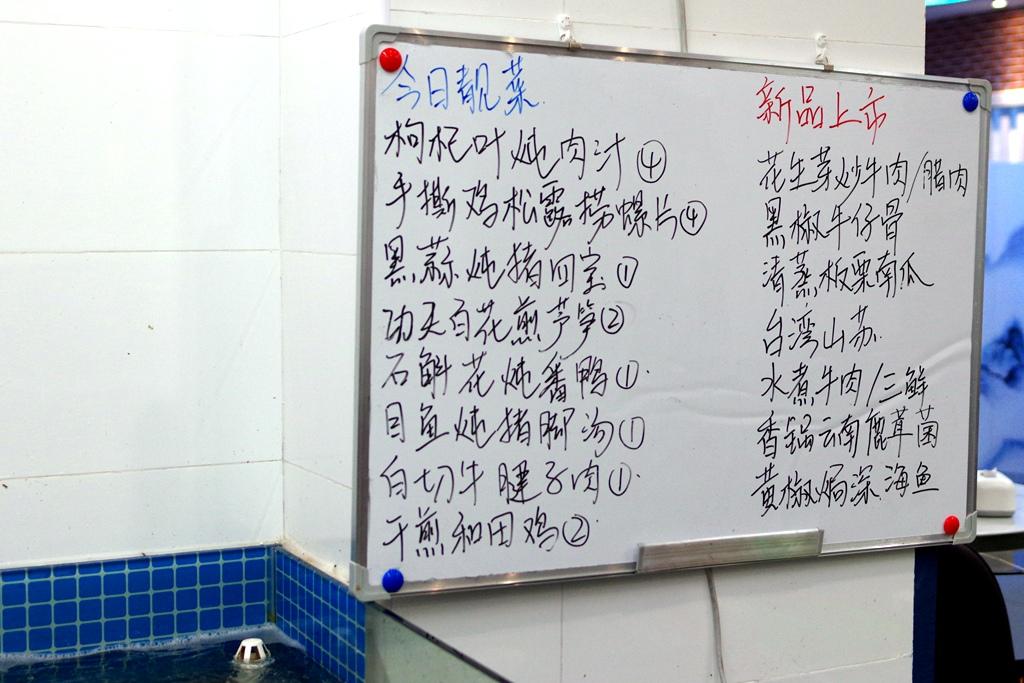 今日靓菜
枸杞叶炖肉汁④
手撕鸡松露捞螺片④
黑蒜炖猪四宝①
功夫百花煎芦笋②
石斛花炖番鸭①
目鱼炖猪脚汤①
白切牛腱子肉①
干煎和田鸡②
新品上市
花生芽炒牛肉/腊肉
黑椒牛仔骨
清蒸板栗南瓜
台湾山苏
水煮牛肉/三鲜
香锅云南鹿茸菌
黄椒焗深海鱼